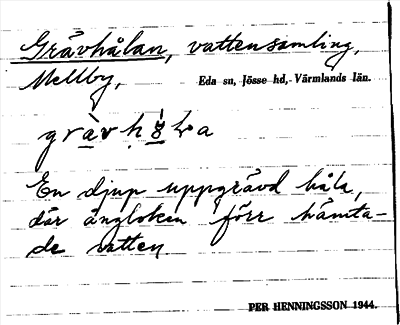 Grävhålan, vattensamling,
Mellby, Eda sn, Jösse hd, Värmlands län.
En djup uppgrävd håla,
där ångloken förr hämta-
de vatten
PER HENNINGSSON 1944.